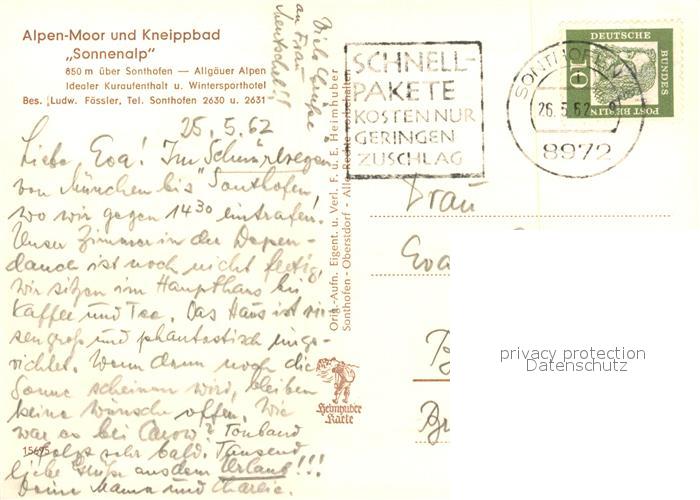 Alpen-Moor und Kneippbad
„Sonnenalp"
850 m über Sonthofen — Allgäuer Alpen
Idealer Kuraufenthalt u. Wintersporthotel
Bes. Ludw. Fässler, Tel. Sonthofen 2630 u. 2631
25.5.62
Liebe Eva! Im Schnürlregen
von München bis Sonthofen,
wo wir gegen 14 30 eintrafen!
Unser Zimmer in der Depen-
dance ist noch nicht fertig,
wir sitzen im Haupthaus bei
Kaffee und Tee. Das Haus ist rie-
sengroß und phantastisch einge-
richtet. Wenn dann noch die
Sonne scheinen wird, bleiben
keine Wünsche offen. Wie
war es bei Carow? Tonband
folgt sehr bald. Tausend
liebe Grüße aus dem Urlaub!!!
Deine Mama und Charlie.
15695
Viele Grüße
an Frau
Orig.-Aufn. Eigent. u. Verl. F. u. E. Heimhuber
Sonthofen - Oberstdorf - Alle Rechte vorbehalten
Heimhuber
Karte
SCHNELL-
PAKETE
KOSTEN NUR
GERINGEN
ZUSCHLAG
SONTHOFEN
26.5.62
8972
DEUTSCHE
BUNDES
POST BERLIN
10
Frau
Eva
privacy protection
Datenschutz